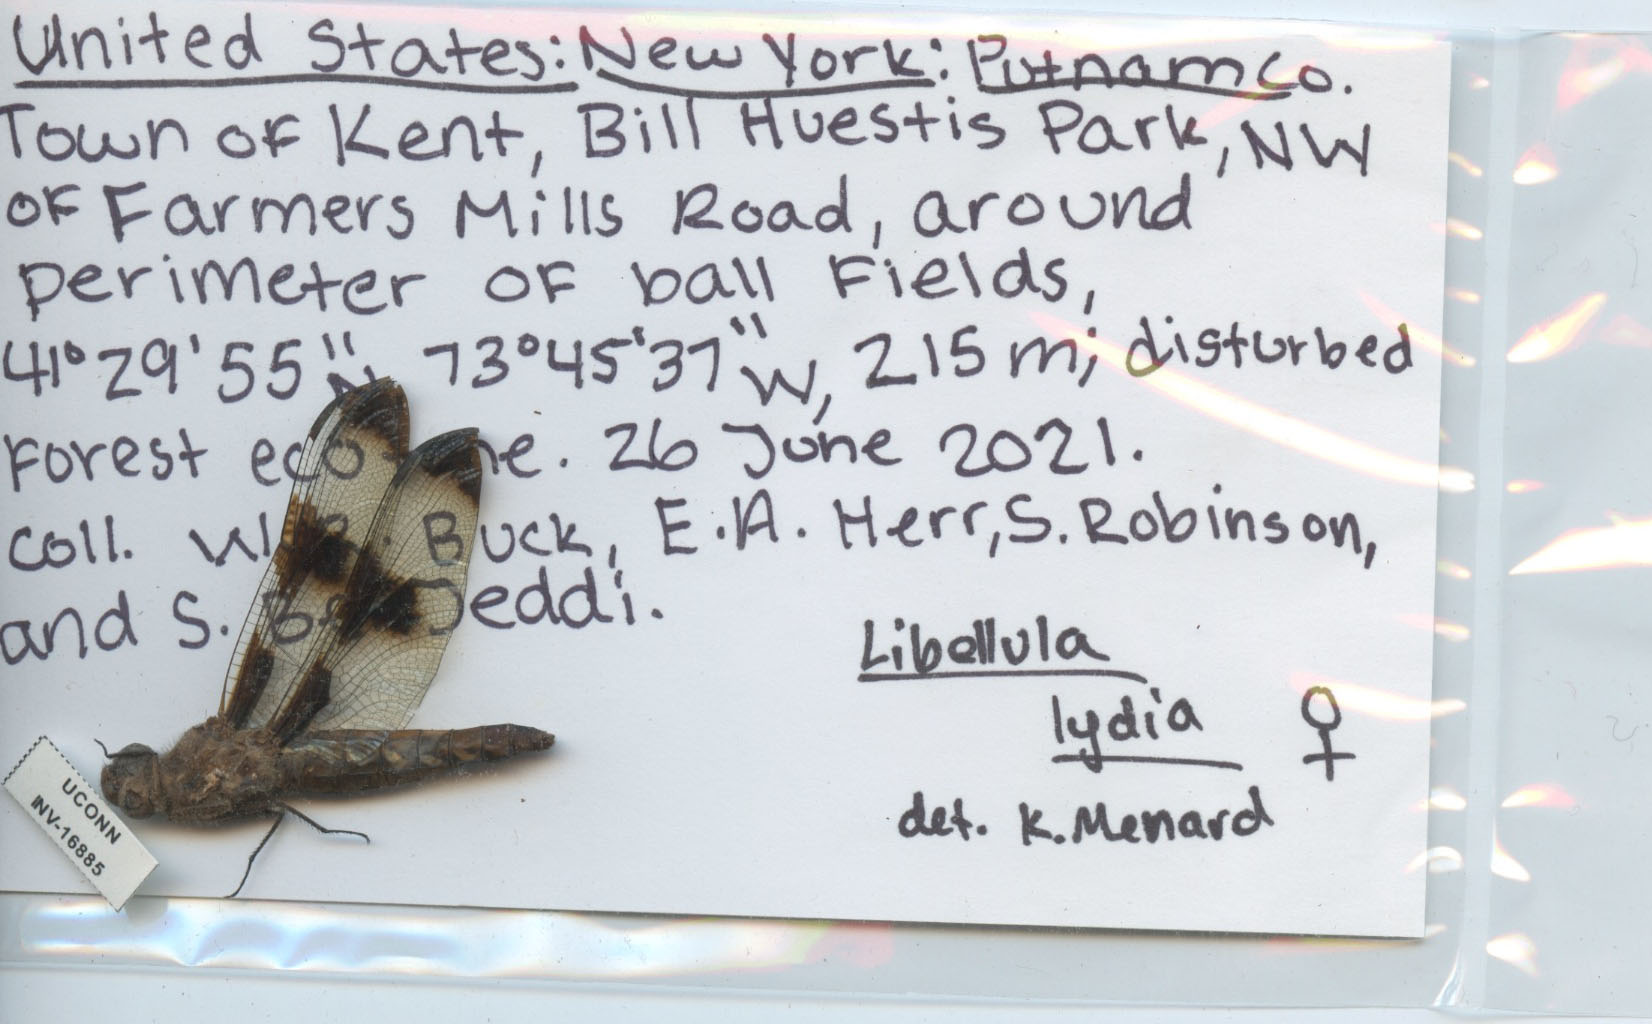 United States: New York: Putnam Co.
Town of Kent, Bill Huestis Park, NW
of Farmers Mills Road, around
perimeter of ball fields,
41°29'55"N 73°45'37"W, 215 m; disturbed
forest 26 June 2021.
coll. Buck, E.A. Herr, S. Robinson,
and S.
Libellula
lydia ♀
det. K. Menard
UCONN
INV-16885